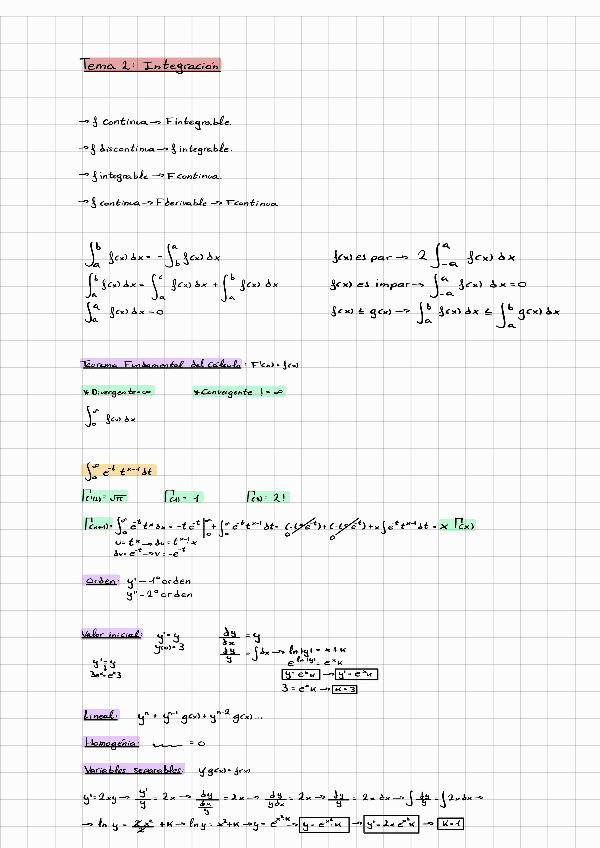 Tema 2: Integración
→ f continua → F integrable.
→ f discontinua → f integrable.
→ f integrable → F continua.
→ f continua → F derivable → F continua
∫_a^b f(x) dx = - ∫_b^a f(x) dx
∫_a^b f(x) dx = ∫_a^c f(x) dx + ∫_c^b f(x) dx
∫_a^a f(x) dx = 0
f(x) es par → 2 ∫_-a^a f(x) dx
f(x) es impar → ∫_-a^a f(x) dx = 0
f(x) ≤ g(x) → ∫_a^b f(x) dx ≤ ∫_a^b g(x) dx
Teorema Fundamental del Cálculo: F'(x) = f(x)
* Divergente = ∞ * Convergente != ∞
∫_0^∞ f(x) dx
∫_0^∞ e^-t t^x-1 dt
Γ(1/2) = √π Γ(1) = 1 Γ(3) = 2!
Γ(x+1) = ∫_0^∞ e^-t t^x dx = -t e^-t |_0^∞ + ∫_0^∞ e^-t t^x-1 dt = + x ∫ e^-t t^x-1 dt = x Γ(x)
u = t^x → du = t^x-1 x
dv = e^-t → v = -e^-t
Orden: y' - 1º orden
y'' - 2º orden
Valor inicial: y' = y
y(0) = 3
y' = y
dy/dx = y
dy/y = ∫dx → ln|y| = x + k
e^ln|y| = e^x k
y = e^x k → y' = e^x k
3 = e^0 k → k = 3
Lineal: y^n + y^n-1 g(x) + y^n-2 g(x) ...
Homogénia: = 0
Variables separables: y' g(x) = f(x)
y' = 2xy → y'/y = 2x → dy/dx/y = 2x → dy/ydx = 2x → dy/y = 2x dx → ∫ dy/y = ∫ 2x dx →
→ ln y = 2/2 x² + k → ln y = x² + k → y = e^x²+k → y = e^x² · k → y' = 2x e^x² k → k = 1